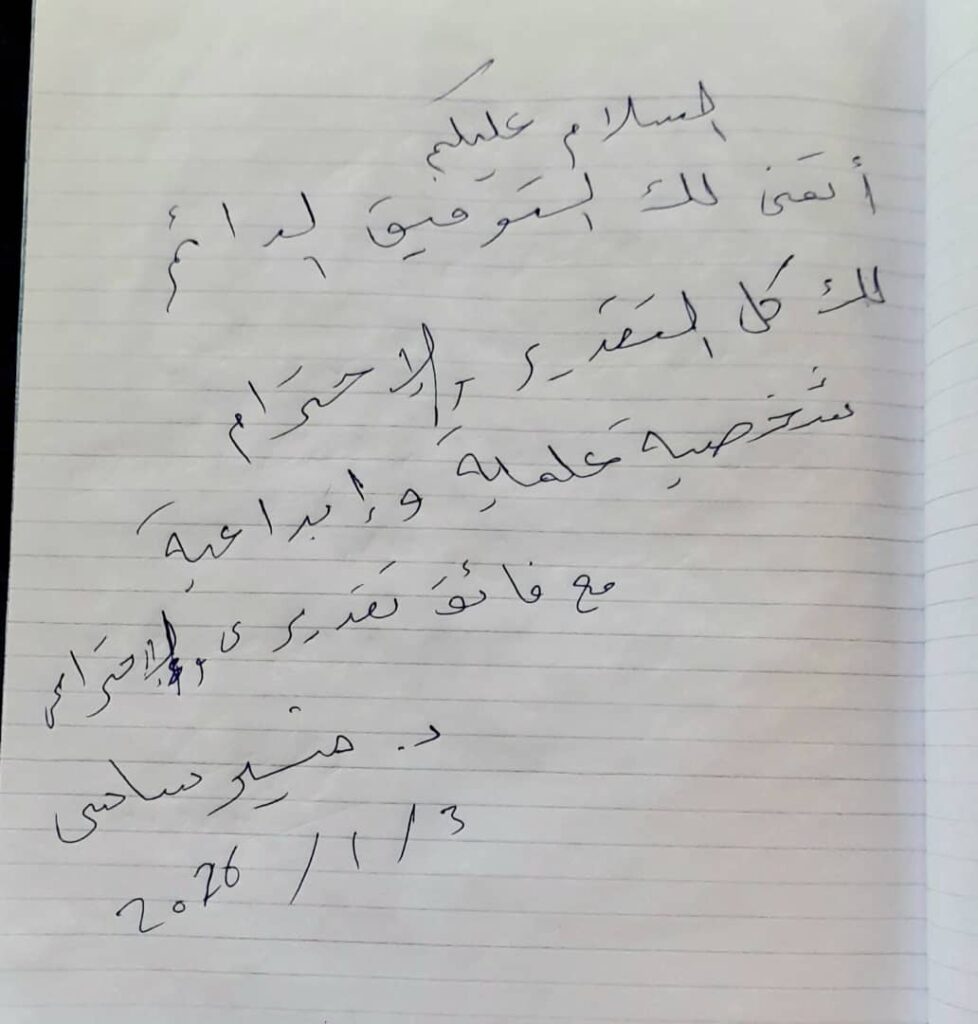 السلام عليكم
أتمنى لك التوفيق الدائم
لك كل التقدير والإحترام
شخصية علمية وإبداعية
مع فائق تقديرى والإحترام
د. منير سامى
3 / 1 / 2026